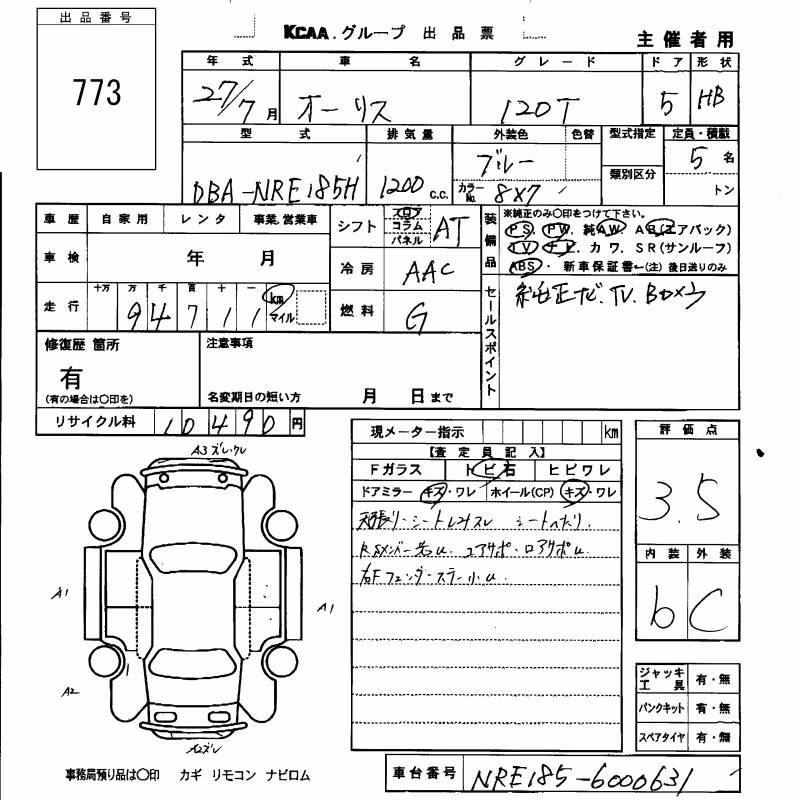 出品番号
773
KCAA.グループ 出品票
主催者用
年式 車名 グレード ドア 形状
27/7月 オーリス 120T 5 HB
型式 排気量 外装色 色替 型式指定 定員・積載
DBA-NRE185H 1200 C.C. ブルー 類別区分 5名
カラーNo. 8X7 トン
車歴 自家用 レンタ 事業.営業車
車検 年 月
走行 十万 万 千 百 十 一
94711 km マイル
シフト フロア コラム パネル AT
冷房 AAC
燃料 G
装備品
※純正のみ○印をつけて下さい。
PS. PW. 純AW AB(エアバック)
TV ナビ. カワ. SR(サンルーフ)
ABS・ 新車保証書←(注)後日送りのみ
セールスポイント
純正ナビ.TV.Bカメラ
修復歴 箇所
有
(有の場合は○印を)
注意事項
名変期日の短い方 月 日まで
リサイクル料 10490円
現メーター指示 km
【査定員記入】
Fガラス トビ石 ヒビワレ
ドアミラー キズ・ワレ ホイール(CP) キズ・ワレ
天張り・シート シートヘタリ.
評価点
3.5
内装 外装
b C
A3
A1
A1
A2
A2ズレ
ジャッキ工具 有・無
パンクキット 有・無
スペアタイヤ 有・無
事務局預り品は○印 カギ リモコン ナビロム
車台番号 NRE185-6000631